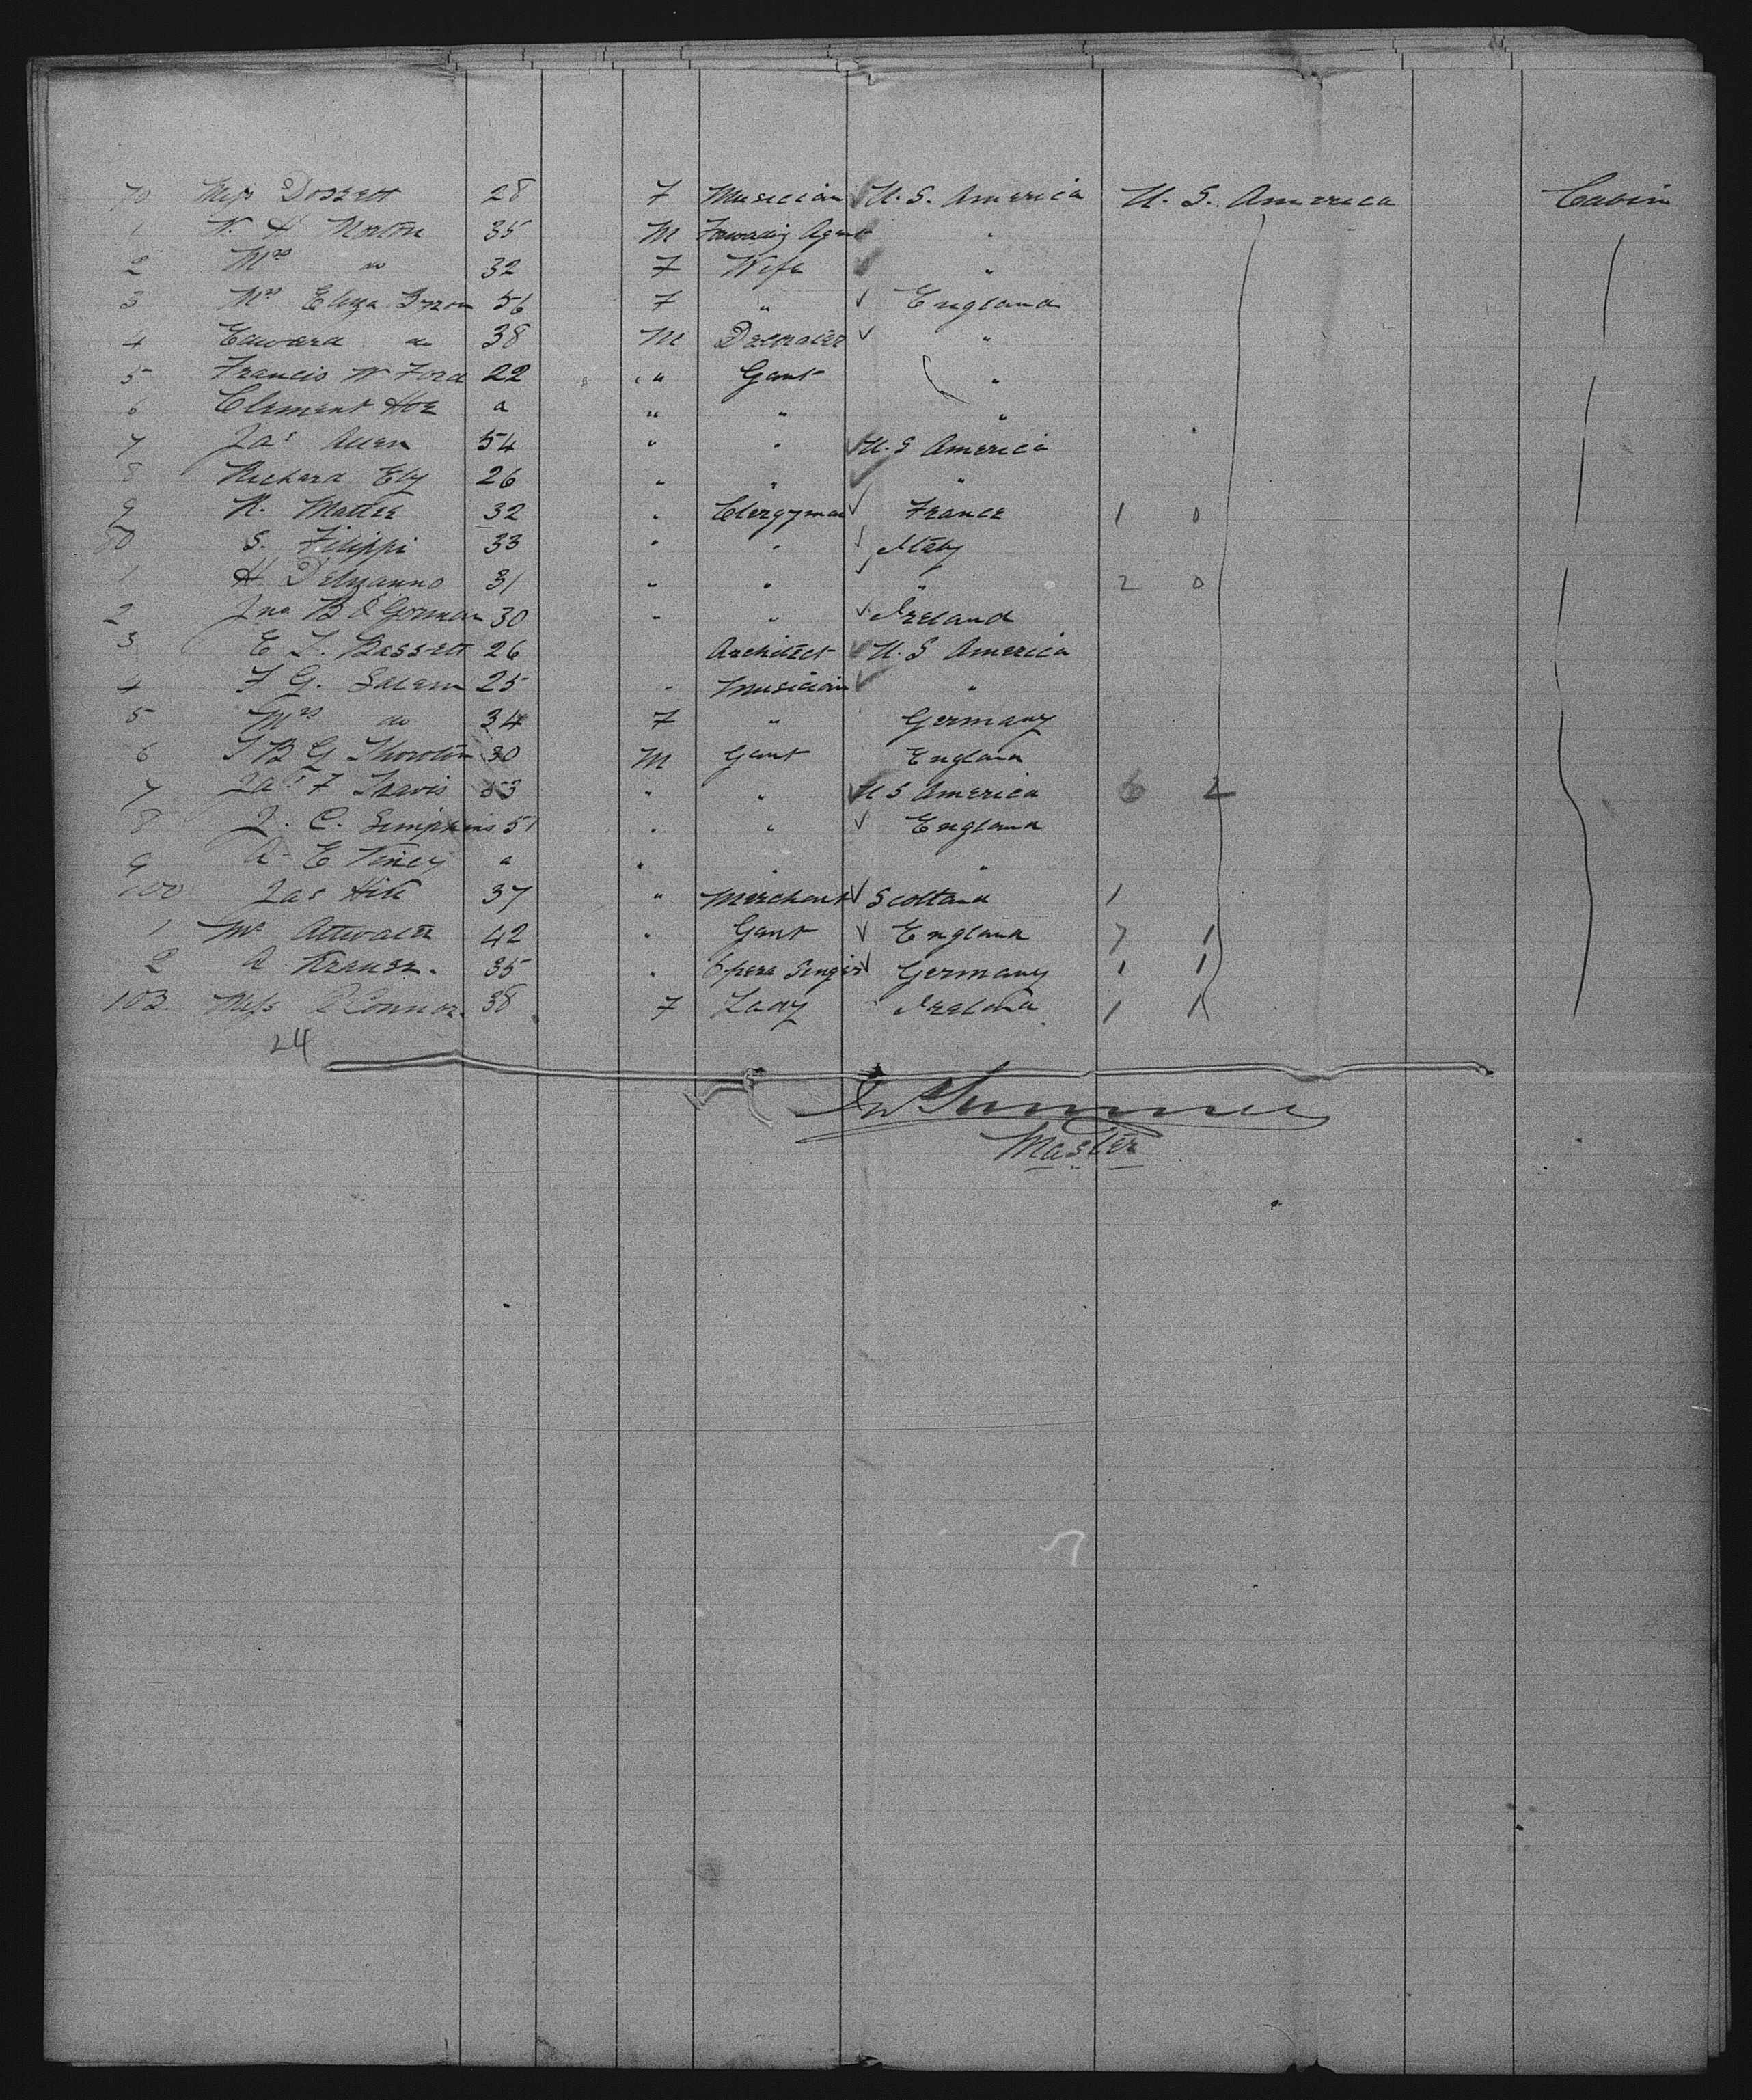 70 Miss Dossett 28 F Musician U. S. America U. S. America Cabin
1 W. H Norton 35 M Forwading Agent "
2 Mrs do 32 F Wife "
3 Mrs Eliza Byron 56 F " England
4 Edward do 38 M Decorater "
5 Francis W Ford 22 " Gent "
6 Clement Hoe a " " "
7 Jas Allen 54 " " U. S America
8 Richard Ely 26 " " "
9 R. Mattee 32 " Clergyman France 1 0
80 S. Filippi 33 " " Italy
1 H. Delmanno 31 " " " 2 0
2 Jno B O'Gorman 30 " " Ireland
3 E T. Bassett 26 Architect U. S America
4 F G. Salem 25 " Musician "
5 Mrs do 34 F " Germany
6 T B G Thoroton 30 M Gent England
7 Jas F Travis 53 " " U S America 6 2
8 J. C. Simpkins 51 " " England
9 A E Viney a " " "
100 Jas Hill 37 " Merchant Scotland 1
1 Mr Attwater 42 " Gent England 7 1
2 A Krause. 35 " Opera Singer Germany 1 1
103. Miss O'Connor. 38 F Lady Ireland 1 1
24
Master